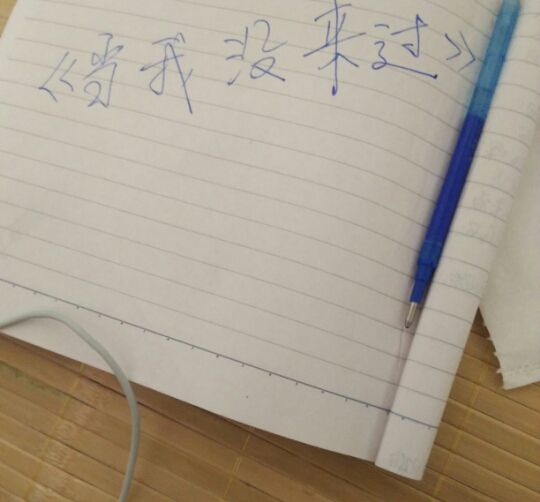 《当我没来过》